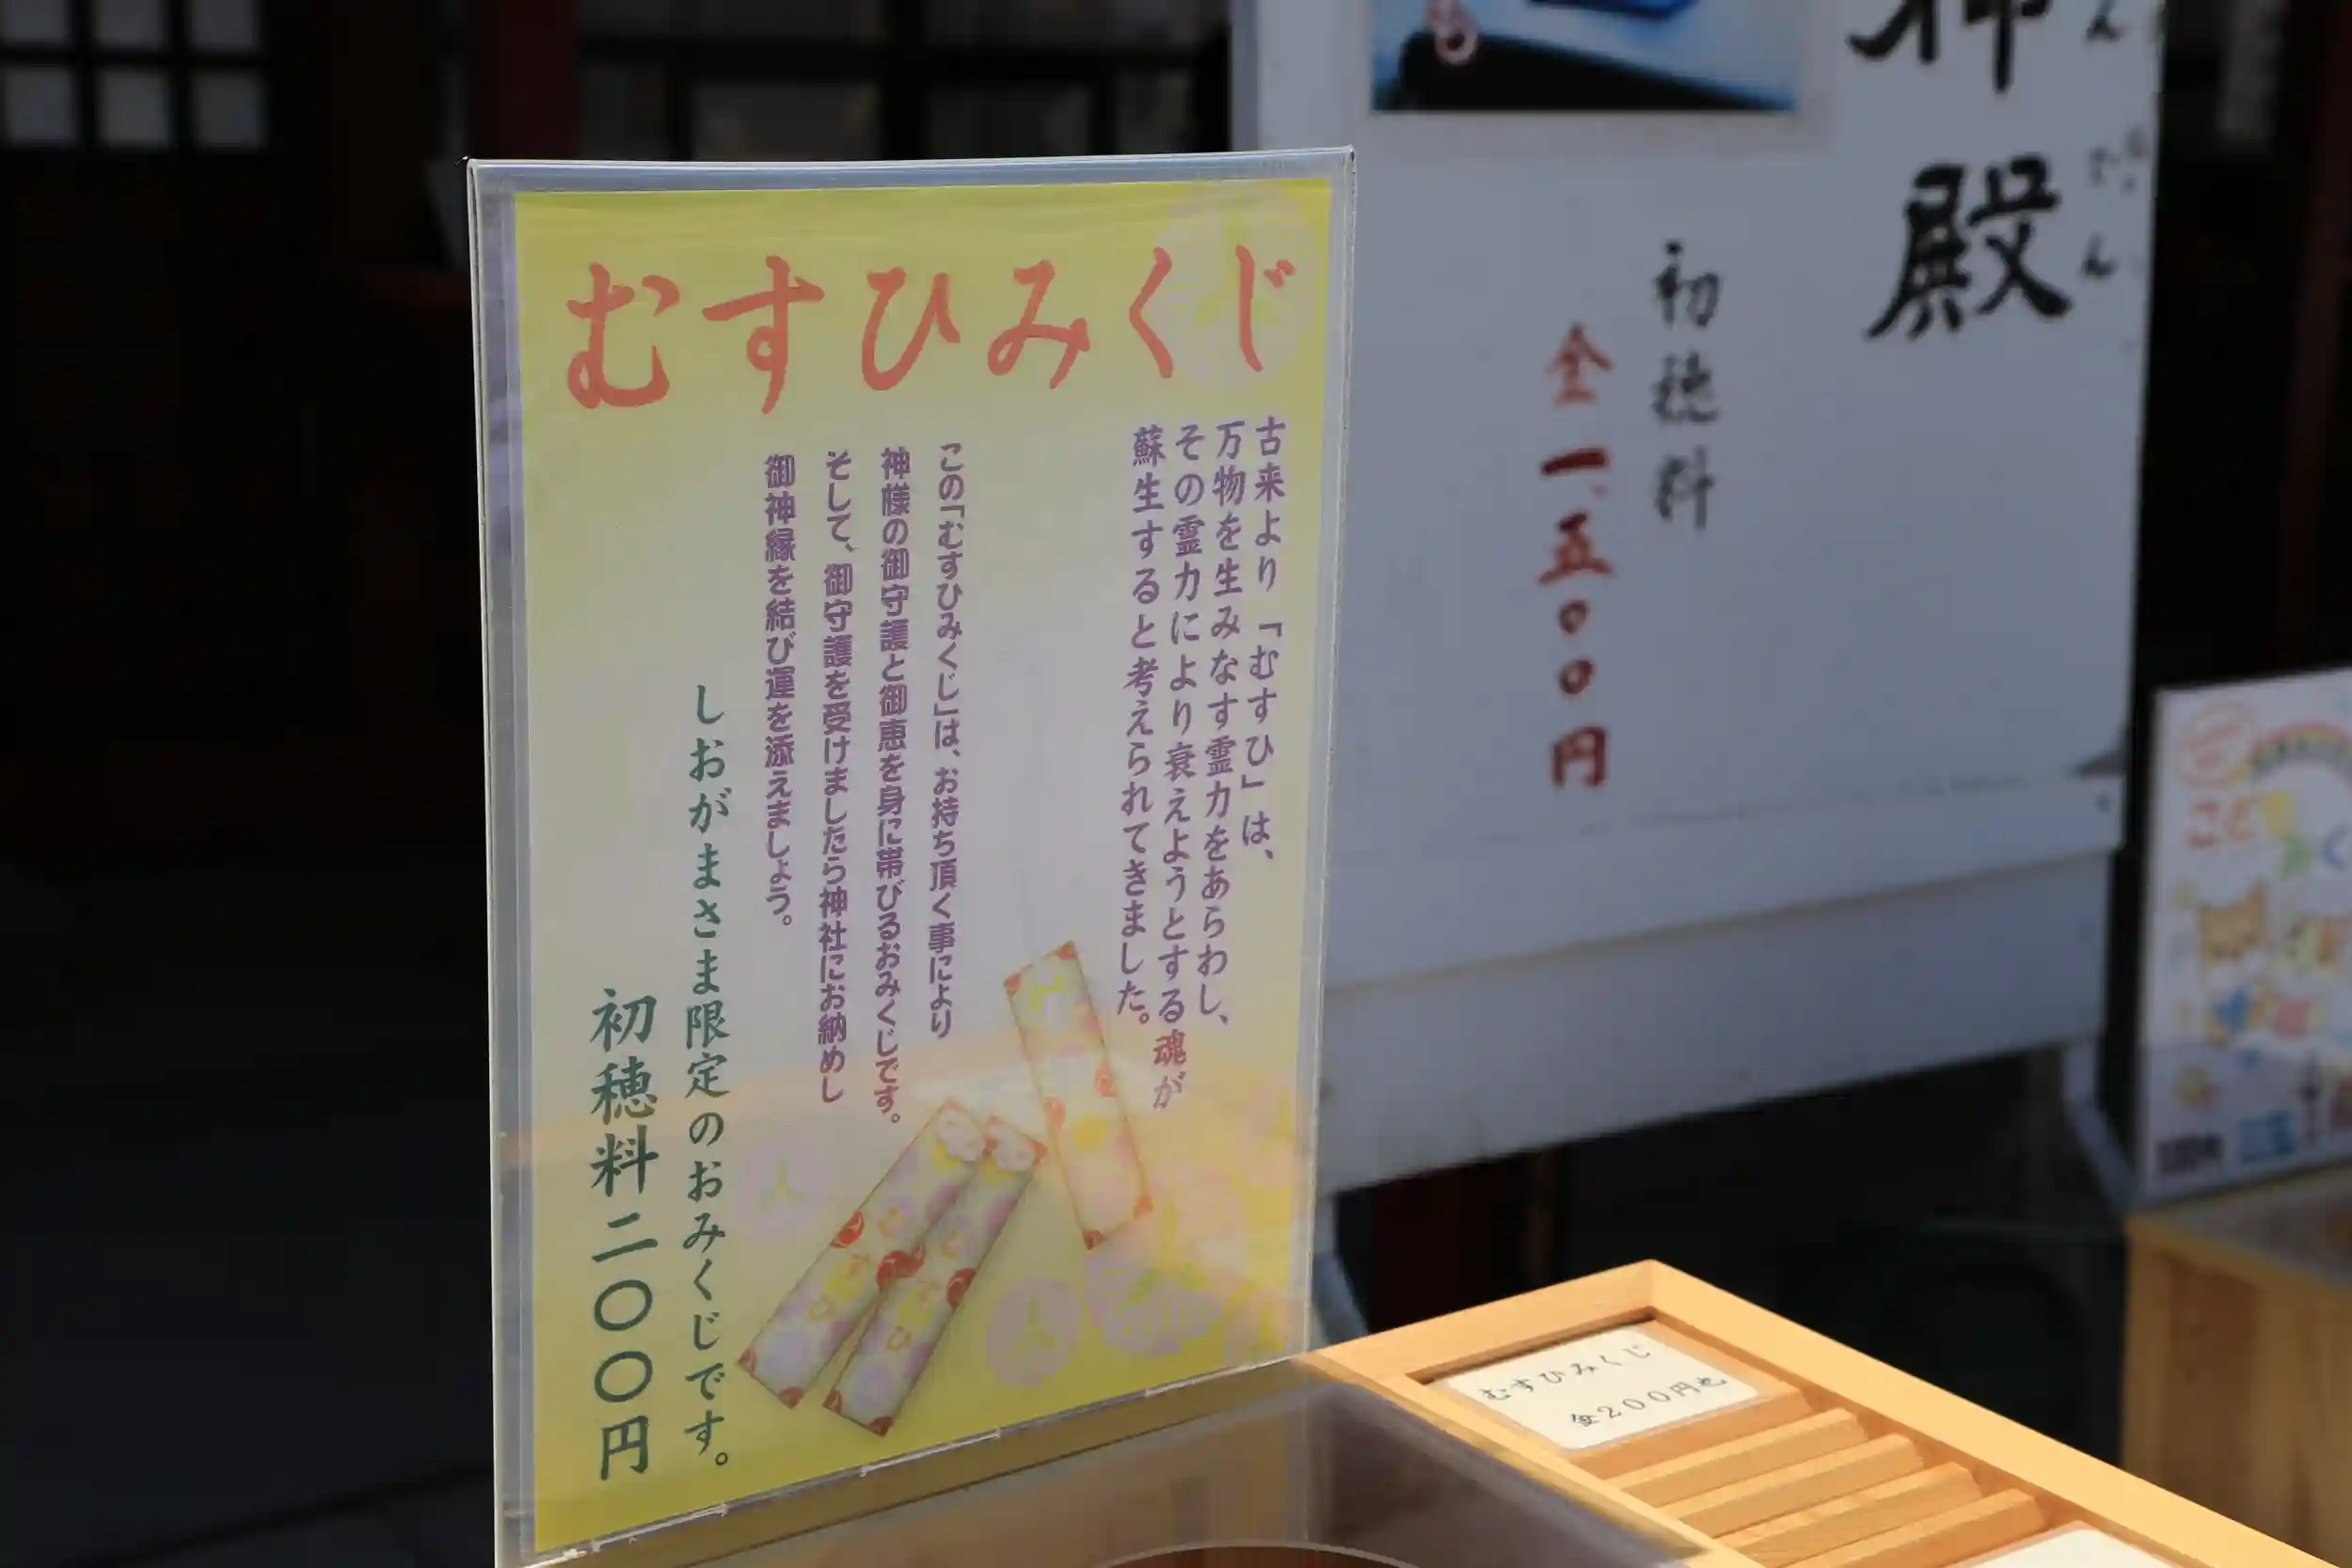 むすひみくじ
古来より「むすひ」は、
万物を生みなす霊力をあらわし、
その霊力により衰えようとする魂が
蘇生すると考えられてきました。
この「むすひみくじ」は、お持ち頂く事により
神様の御守護と御恵を身に帯びるおみくじです。
そして、御守護を受けましたら神社にお納めし
御神縁を結び運を添えましょう。
しおがまさま限定のおみくじです。
初穂料二〇〇円
殿
でん
初穂料
金一、五〇〇円
むすひみくじ
金200円也
こども
みく